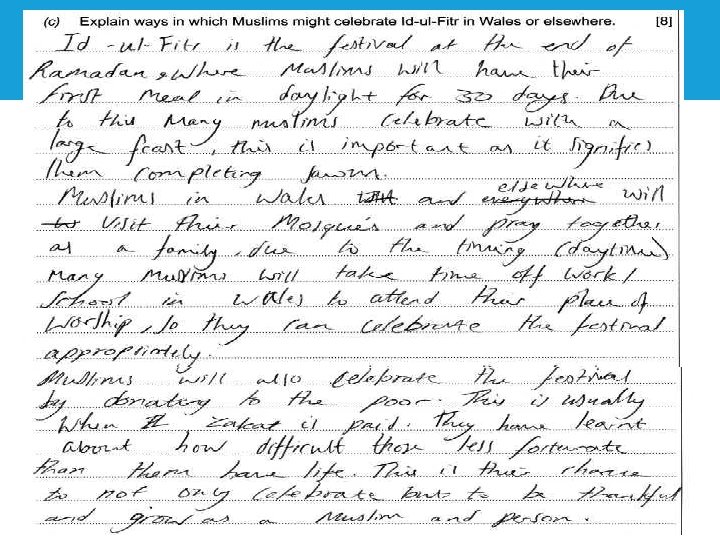 (c) Explain ways in which Muslims might celebrate Id-ul-Fitr in Wales or elsewhere. [8]
Id -ul- Fitr is the festival at the end of
Ramadan, where Muslims will have their
first meal in daylight for 30 days. Due
to this many muslims celebrate with a
large feast, this is important as it signifies
them completing
Muslims in Wales and everywhere elsewhere will
to visit their Mosques and pray together
as a family, due to the timing (daytime)
many Muslims will take time off work/
School in Wales to attend their place of
worship, so they can celebrate the festival
appropriately.
Muslims will also celebrate the festival
by donating to the poor. This is usually
when zakat is paid. They have learnt
about how difficult those less fortunate
than them have life. This is their chance
to not only celebrate but to be thankful
and grow as a Muslim and person.